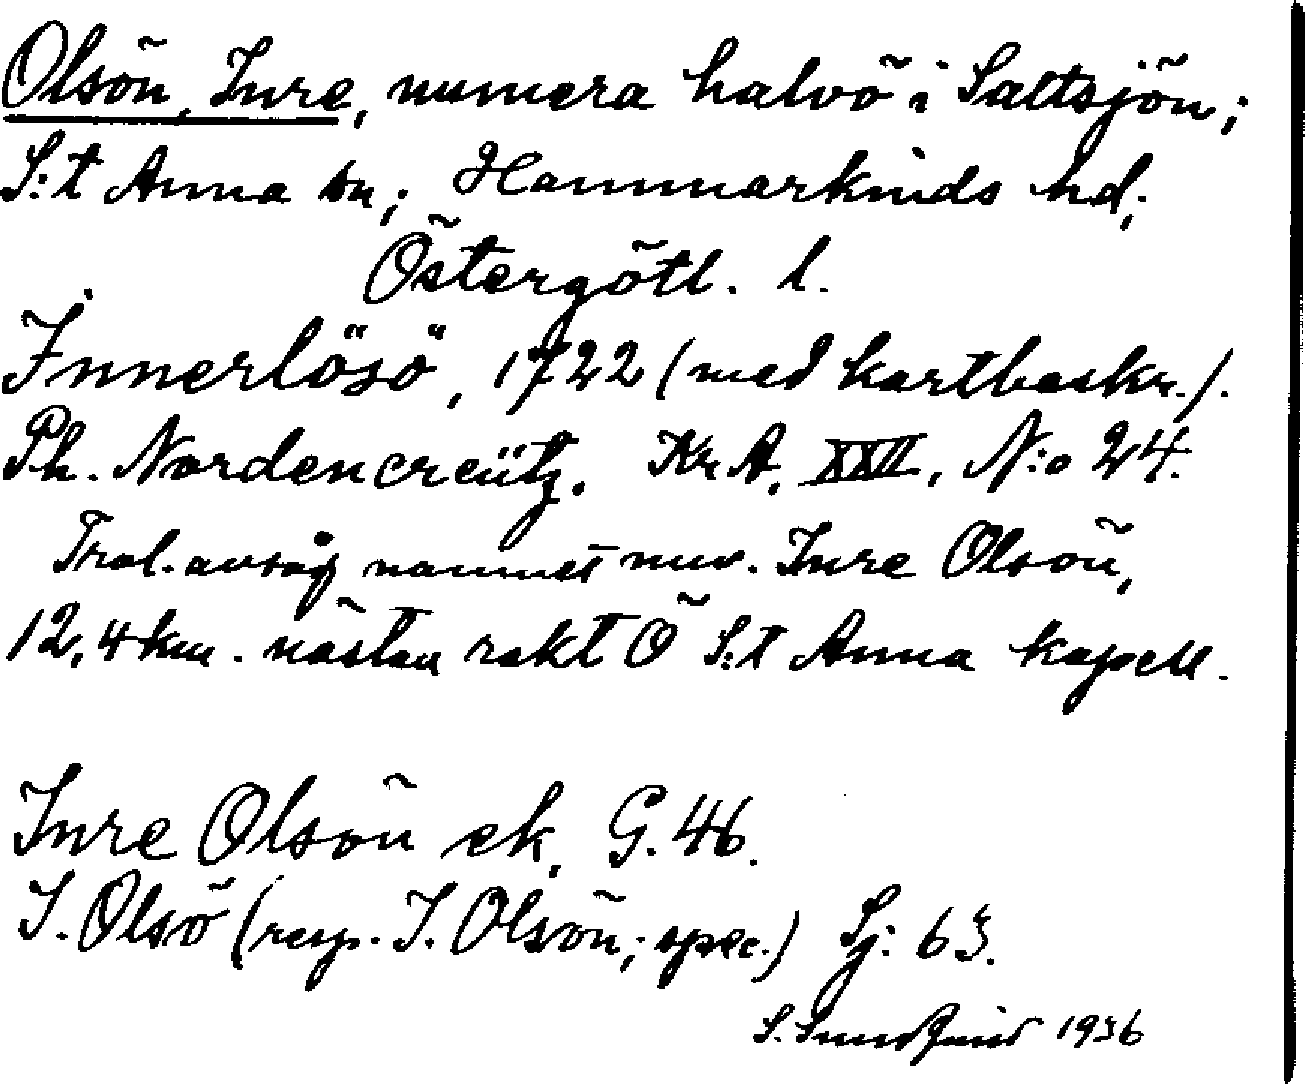 Olsön, Inre, numera halvö i Saltsjön;
S:t Anna sn; Hammarkinds hd;
Östergötl. l.
Innerlösö, 1722 (med kartbeskr.).
Ph. Nordencreütz. Kr A, XXII, N:o 24.
Trol. avsåg namnet nuv. Inre Olsön,
12,4 km. nästan rakt Ö S:t Anna kapell.
Inre Olsön ek, G. 46.
I. Olsö (resp. I. Olsön; spec.) Sj: 63.
S. 1936